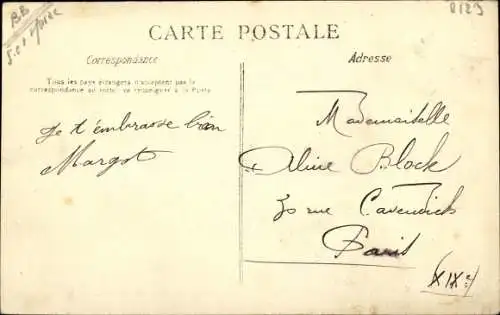 BB
8129
CARTE POSTALE
Correspondance
Adresse
Tous les pays étrangers n'acceptent pas la
correspondance au recto, se renseigner à la Poste
Je t'embrasse bien
Margot
Mademoiselle
Aline Block
30 rue Cavendish
Paris
(XIXe)